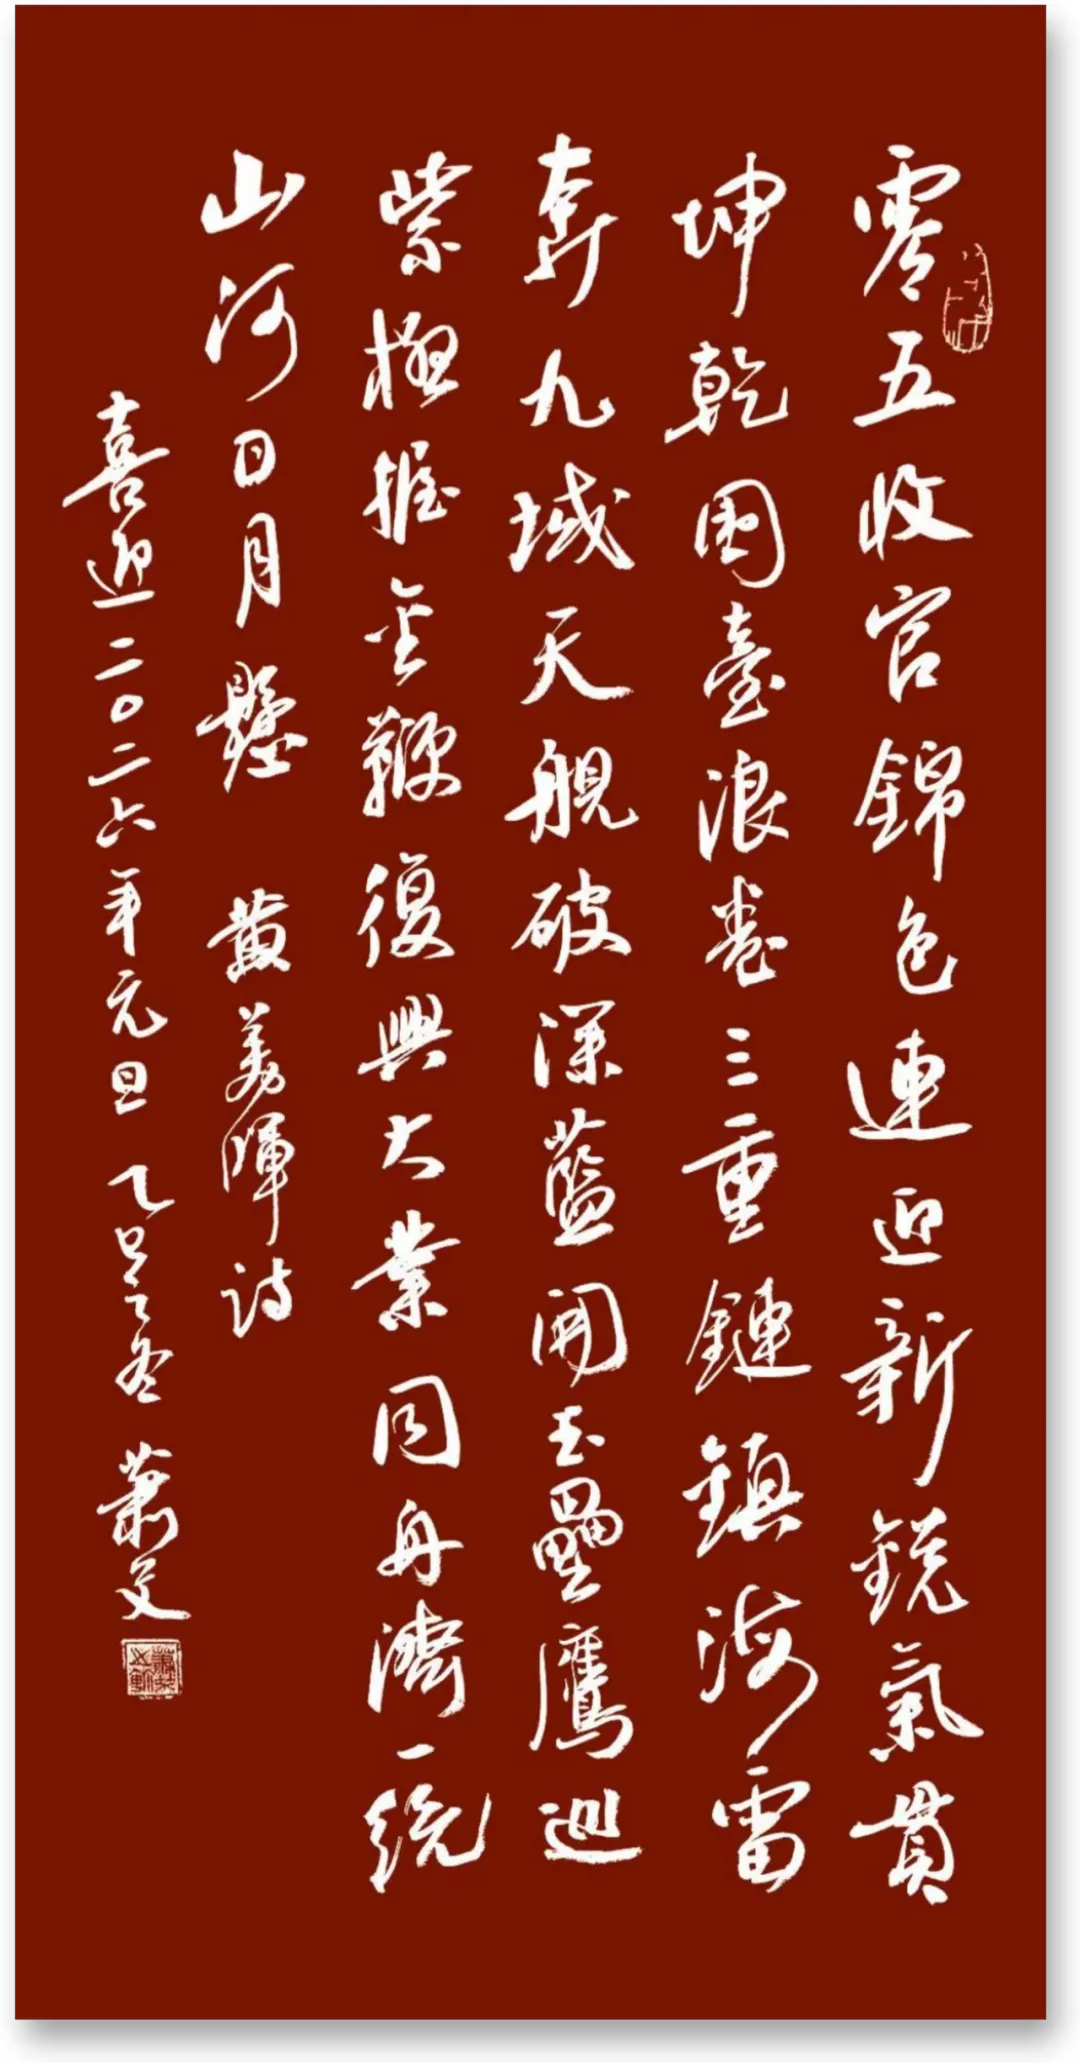 零五收官錦色連迎新銳氣貫
坤乾围臺浪卷三重鏈鎮海雷
奔九域天舰破深藍開玉壘鷹巡
紫極握金鞭復興大業同舟濟一统
山河日月懸 黄美暉诗
喜迎二〇二六年元旦 乙巳之冬 蕭文